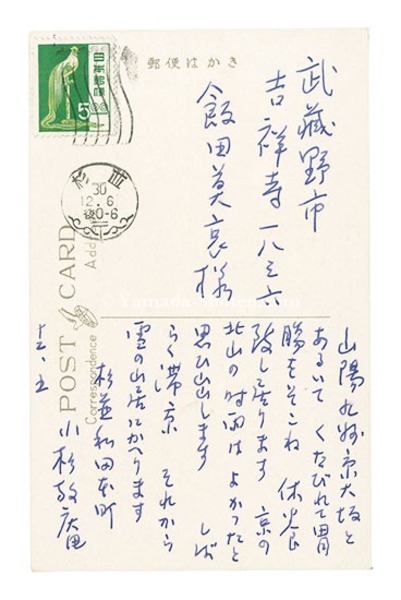 郵便はかき
日本郵便
5
杉並
30
12.6
後0-6
武藏野市
吉祥寺一八三六
飯田莫哀様
POST CARD
Correspondence
山陽九州京大坂と
あるいて くたびれて胃
腸をそこね 休養
致し居ります 京の
北山の時雨はよかつたと
思ひ出します しば
らく滞京 それから
雪の山居にかへります
杉並和田本町
小杉放庵
十二、五